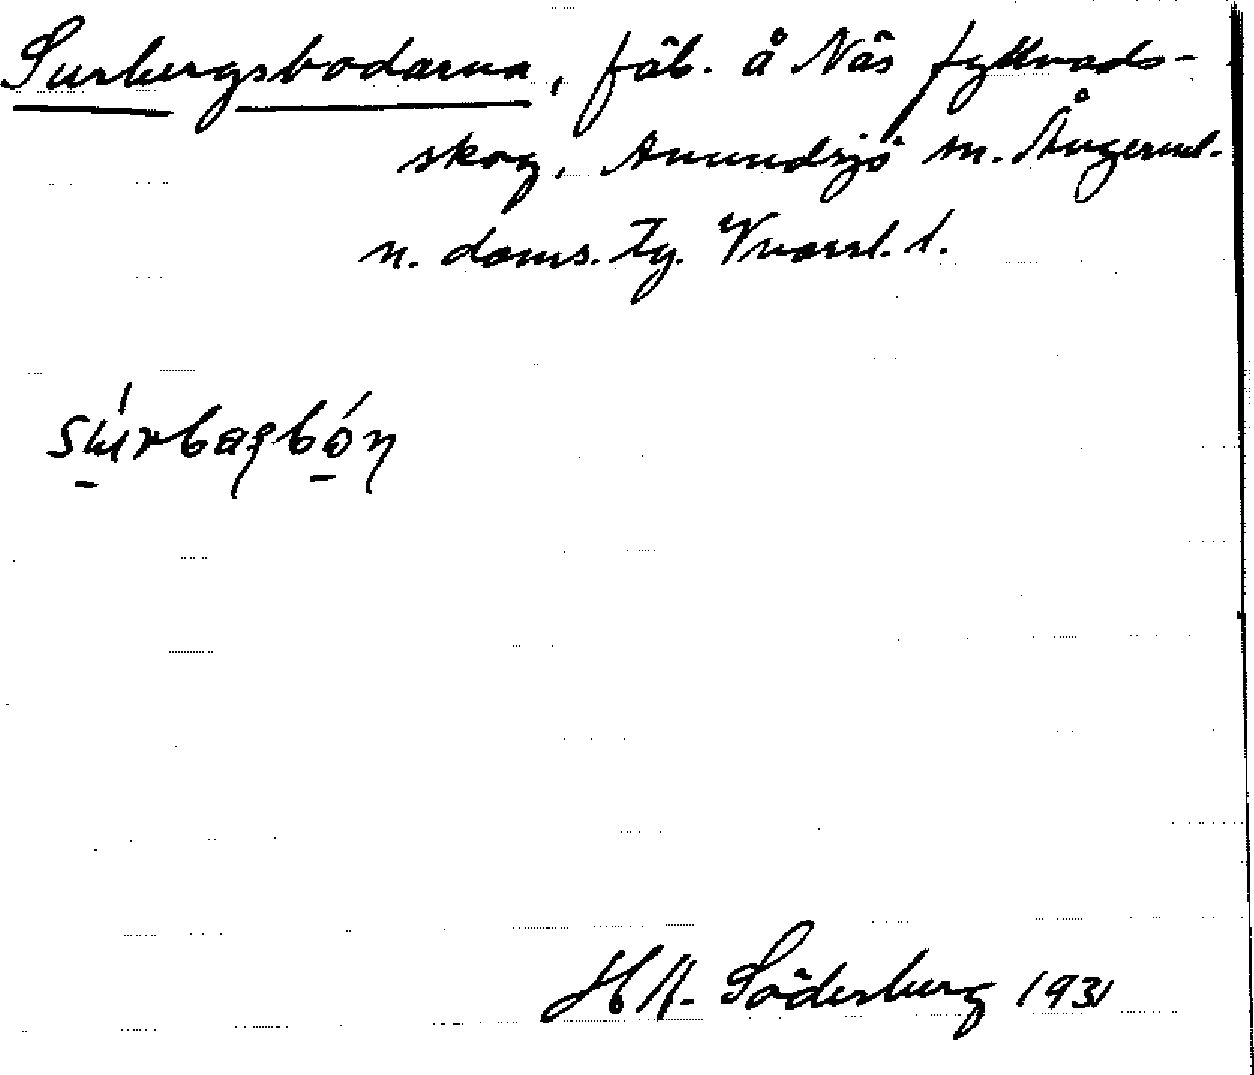 Surbergsbodarna, fäb. å Näs fyllnads-
skog, Anundsjö m. Ångerml.
n. doms. tg. Vnorrl. l.
súrbaʂbón
H A- Söderberg 1931